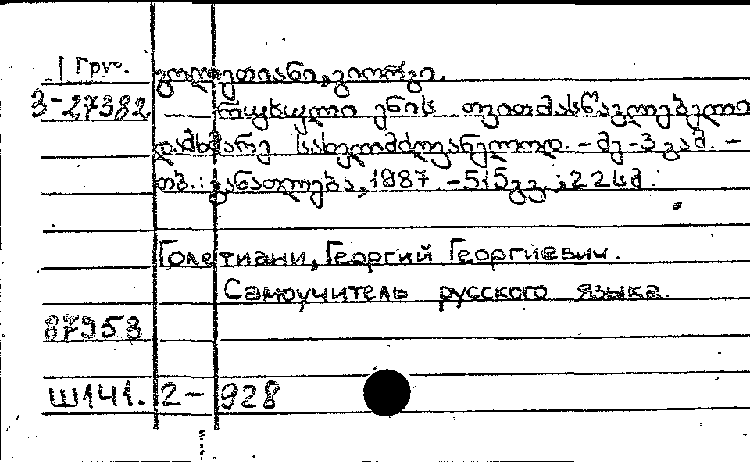 1 Груз. გოლეთიანი, გიორგი.
3-27382 რუსული ენის თვითმასწავლებელი
დამხმარე სახელმძღვანელოდ. - მე-3 გამ. -
თბ.: განათლება, 1987. - 515გვ.; 22 სმ.
Голетиани, Георгий Георгиевич.
Самоучитель русского языка.
87953
Ш141.2-928